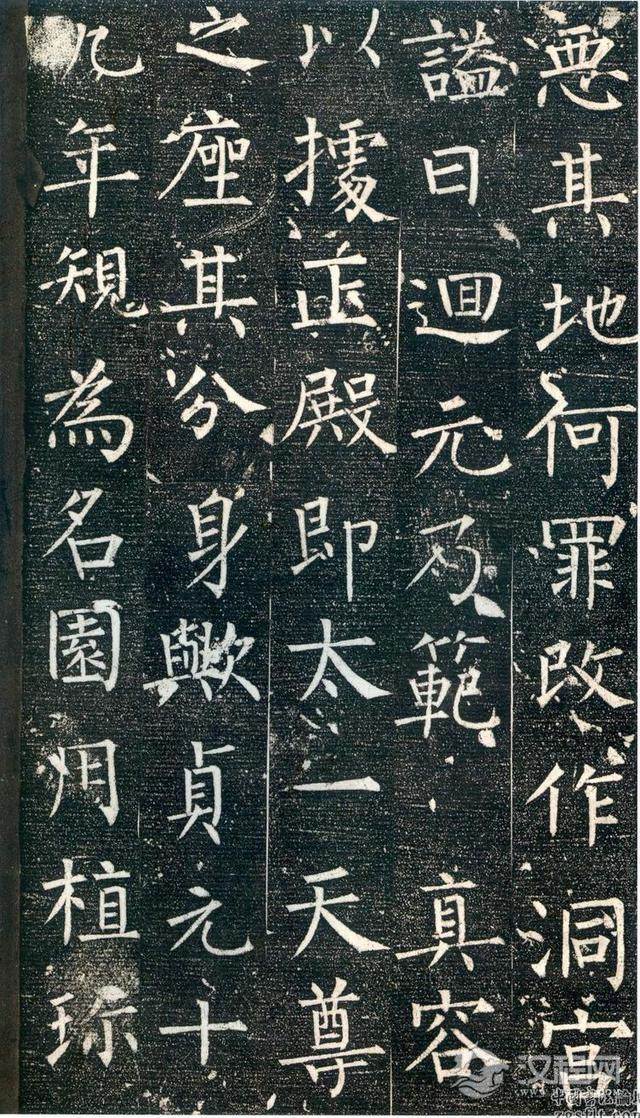 惡其地何罪改作洞宮
謚曰迴元乃範真容
以據正殿即太一天尊
之座其分身歟貞元十
九年規為名園用植珎
汉程网